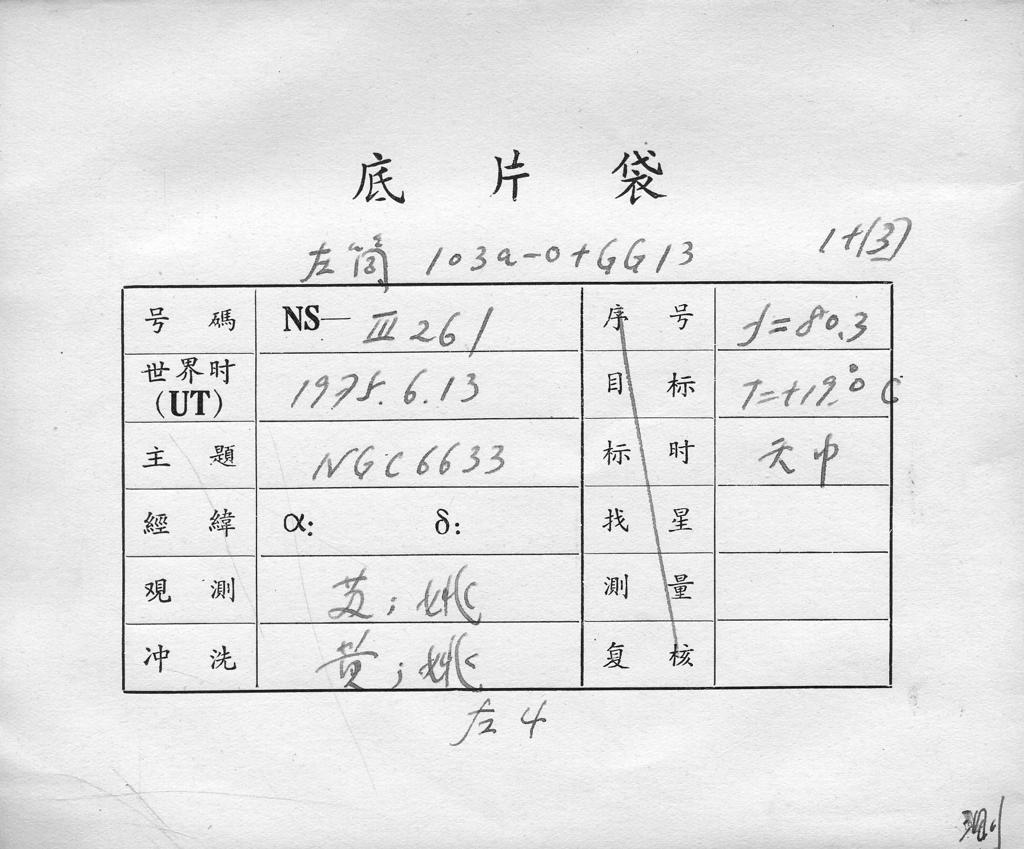 底片袋
左筒 103a-0+GG13 1+(3)
号碼 NS— III 261 序号 f=80.3
世界时(UT) 1975.6.13 目标 T=+19.°0 C
主題 NGC6633 标时 天中
經緯 α: δ: 找星
观測 ; 姚 測量
冲洗 黄; 姚 复核
左4